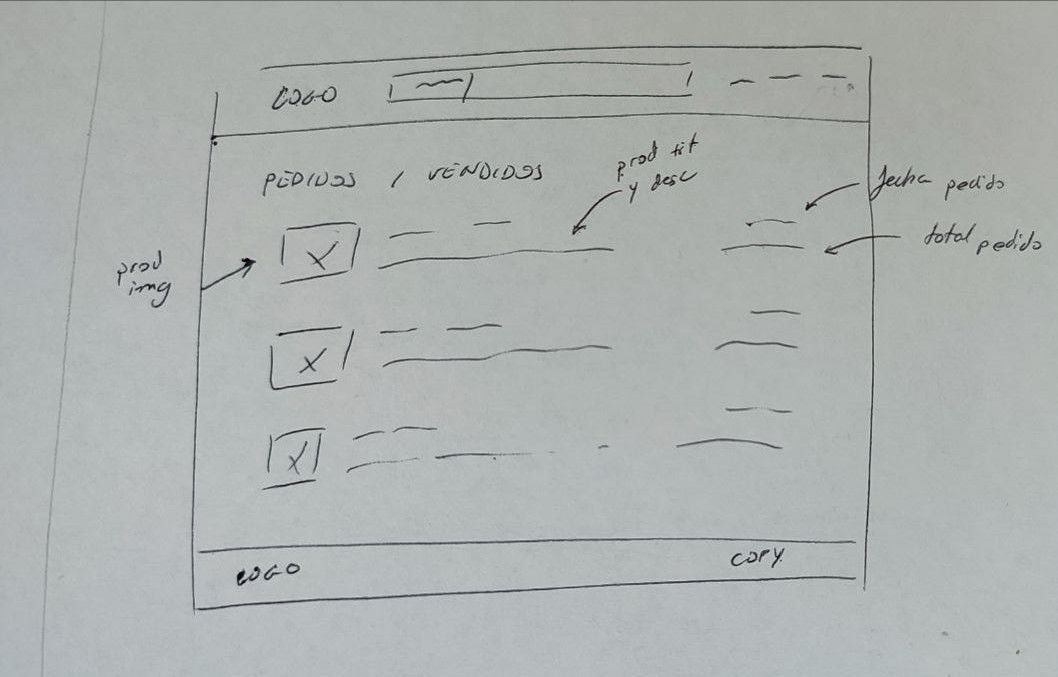 LOGO
PEDIDOS / VENDIDOS
prod tit
y desc
fecha pedido
total pedido
prod
img
LOGO
COPY